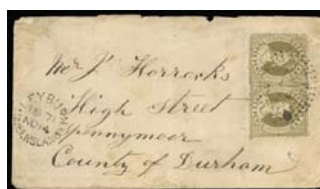 Mr J Horrocks
High Street
Spennymoor
County of Durham
NO 14